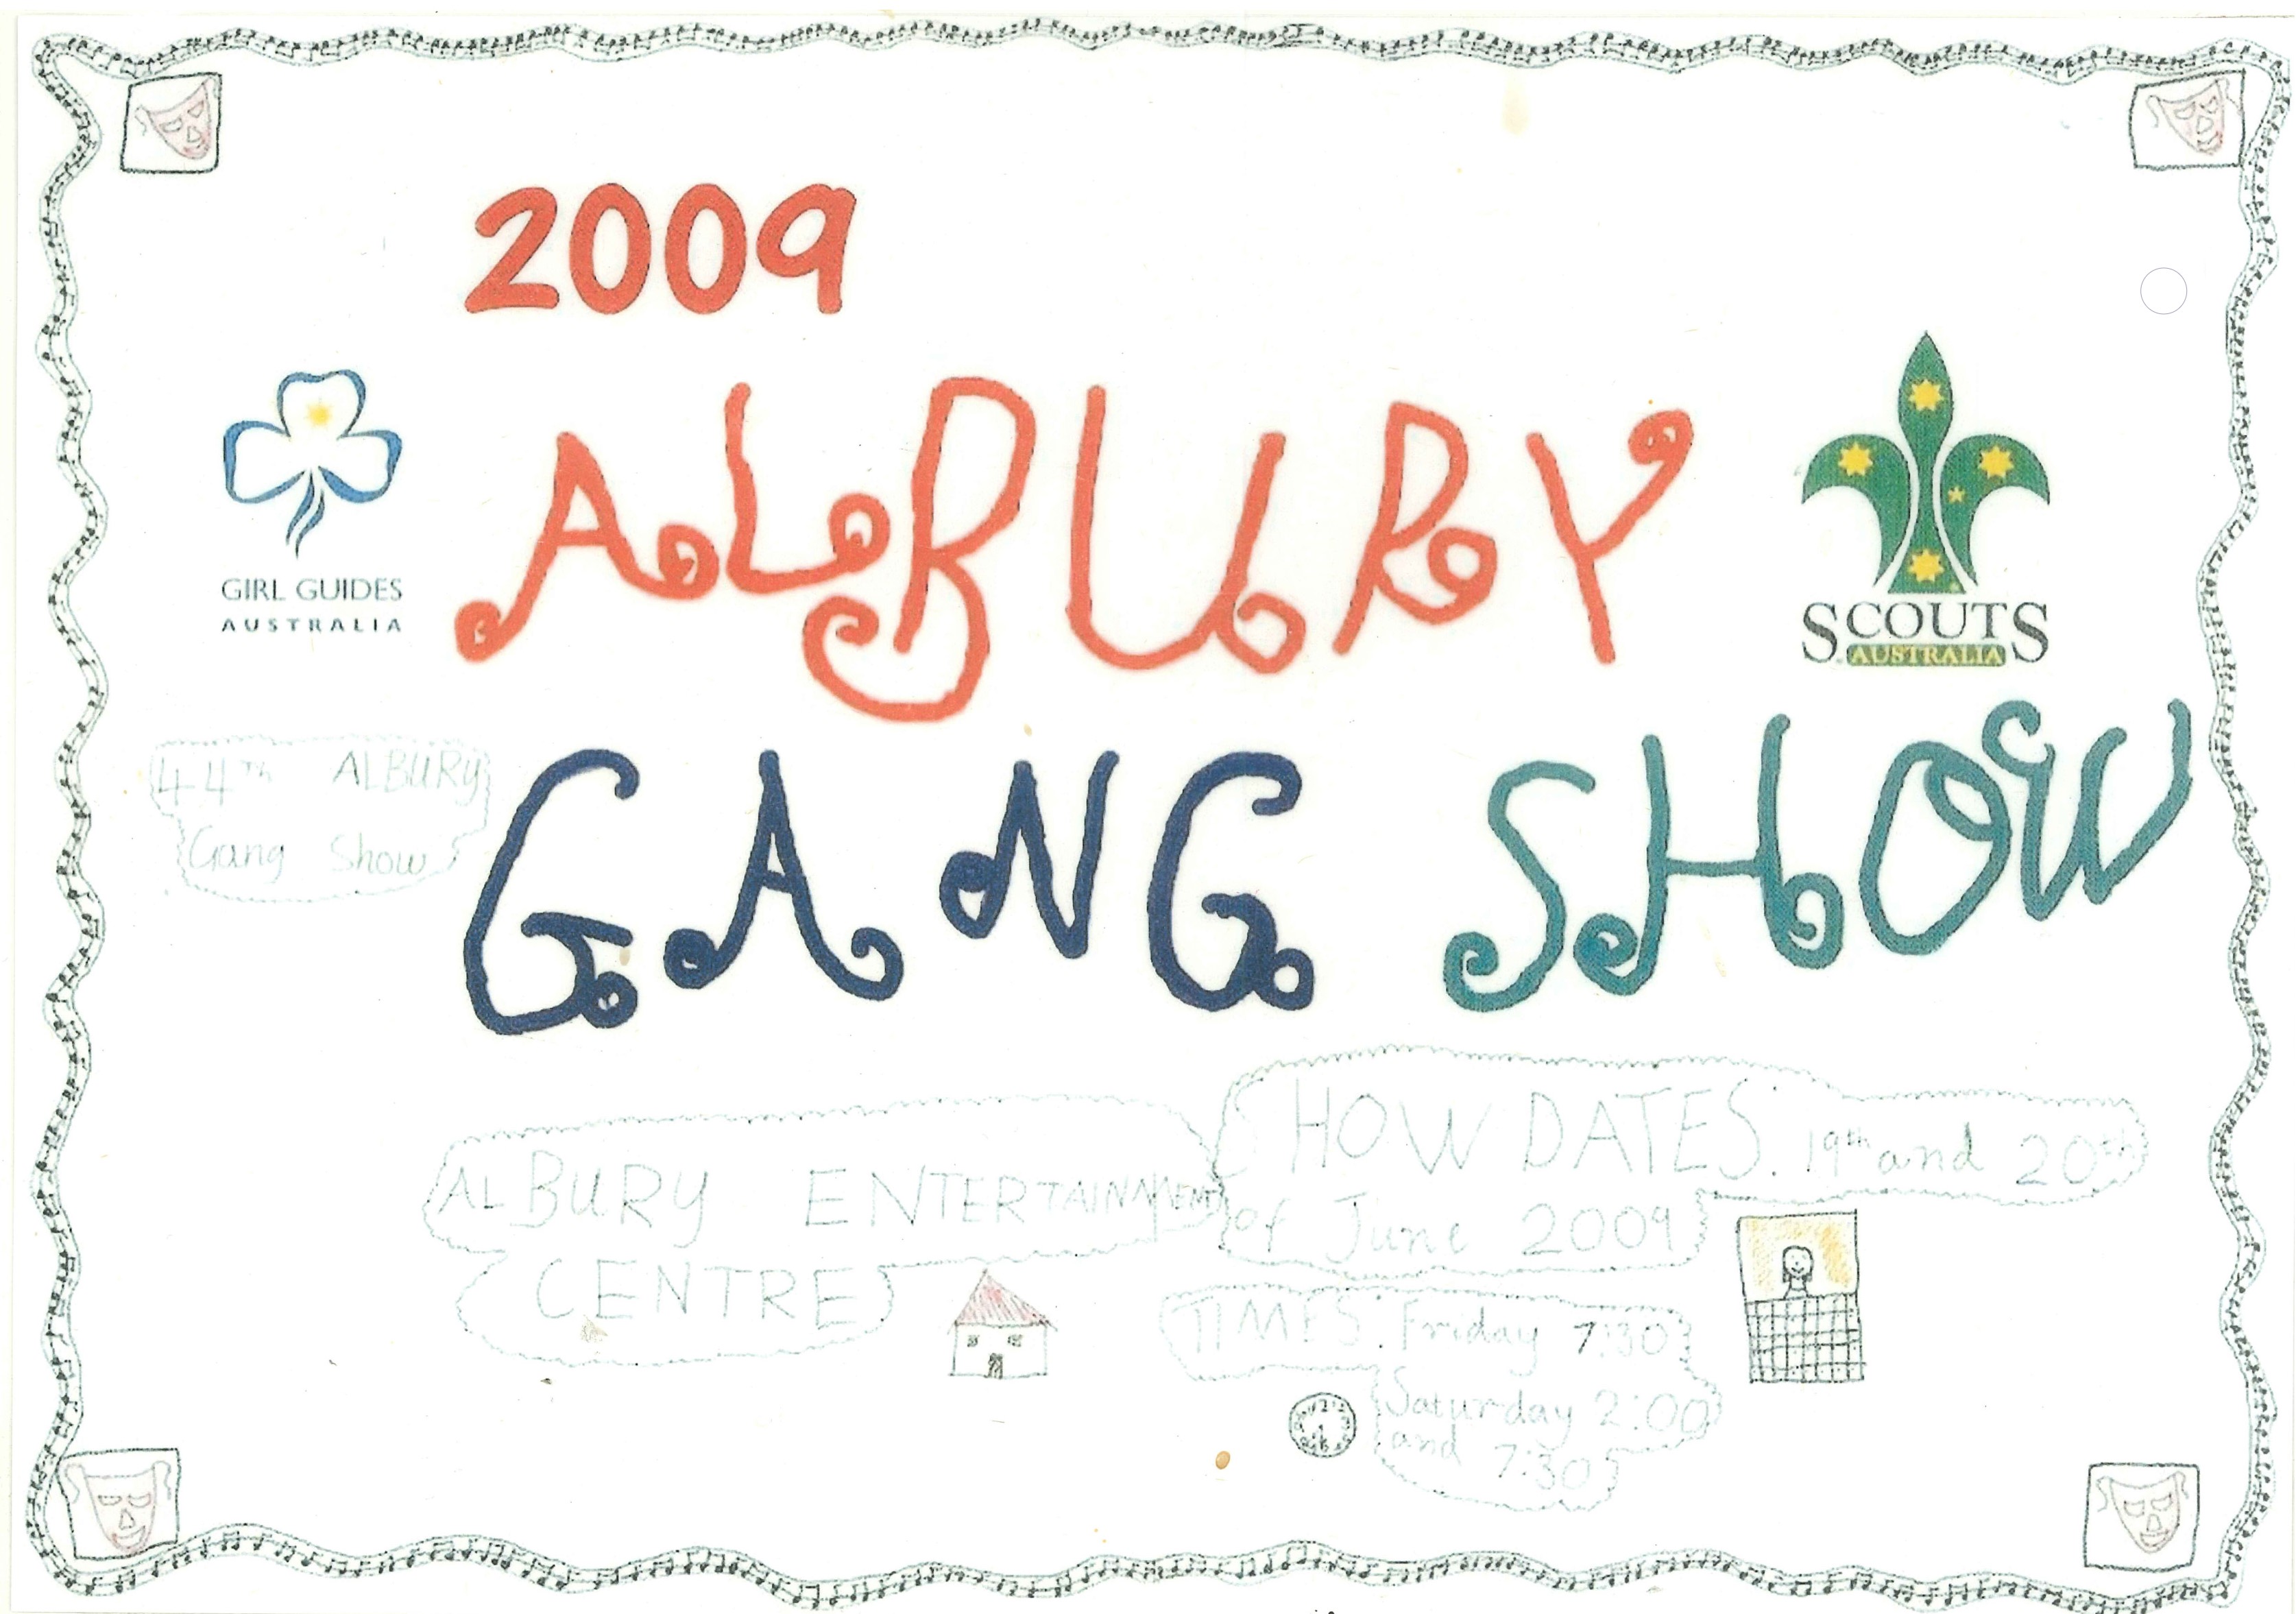 2009
ALBURY
GIRL GUIDES
AUSTRALIA
SCOUTS
AUSTRALIA
GANG SHOW
44Th ALBURY
Gang Show
ALBURY ENTERTAINMENT
CENTRE
SHOW DATES: 19th and 20th
of June 2009
TIMES: Friday 7:30
Saturday 2:00
and 7:30